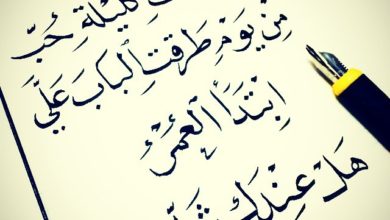 كليلة حب
من يوم طرقت الباب علي
ابتدأ العمر
هل عندك